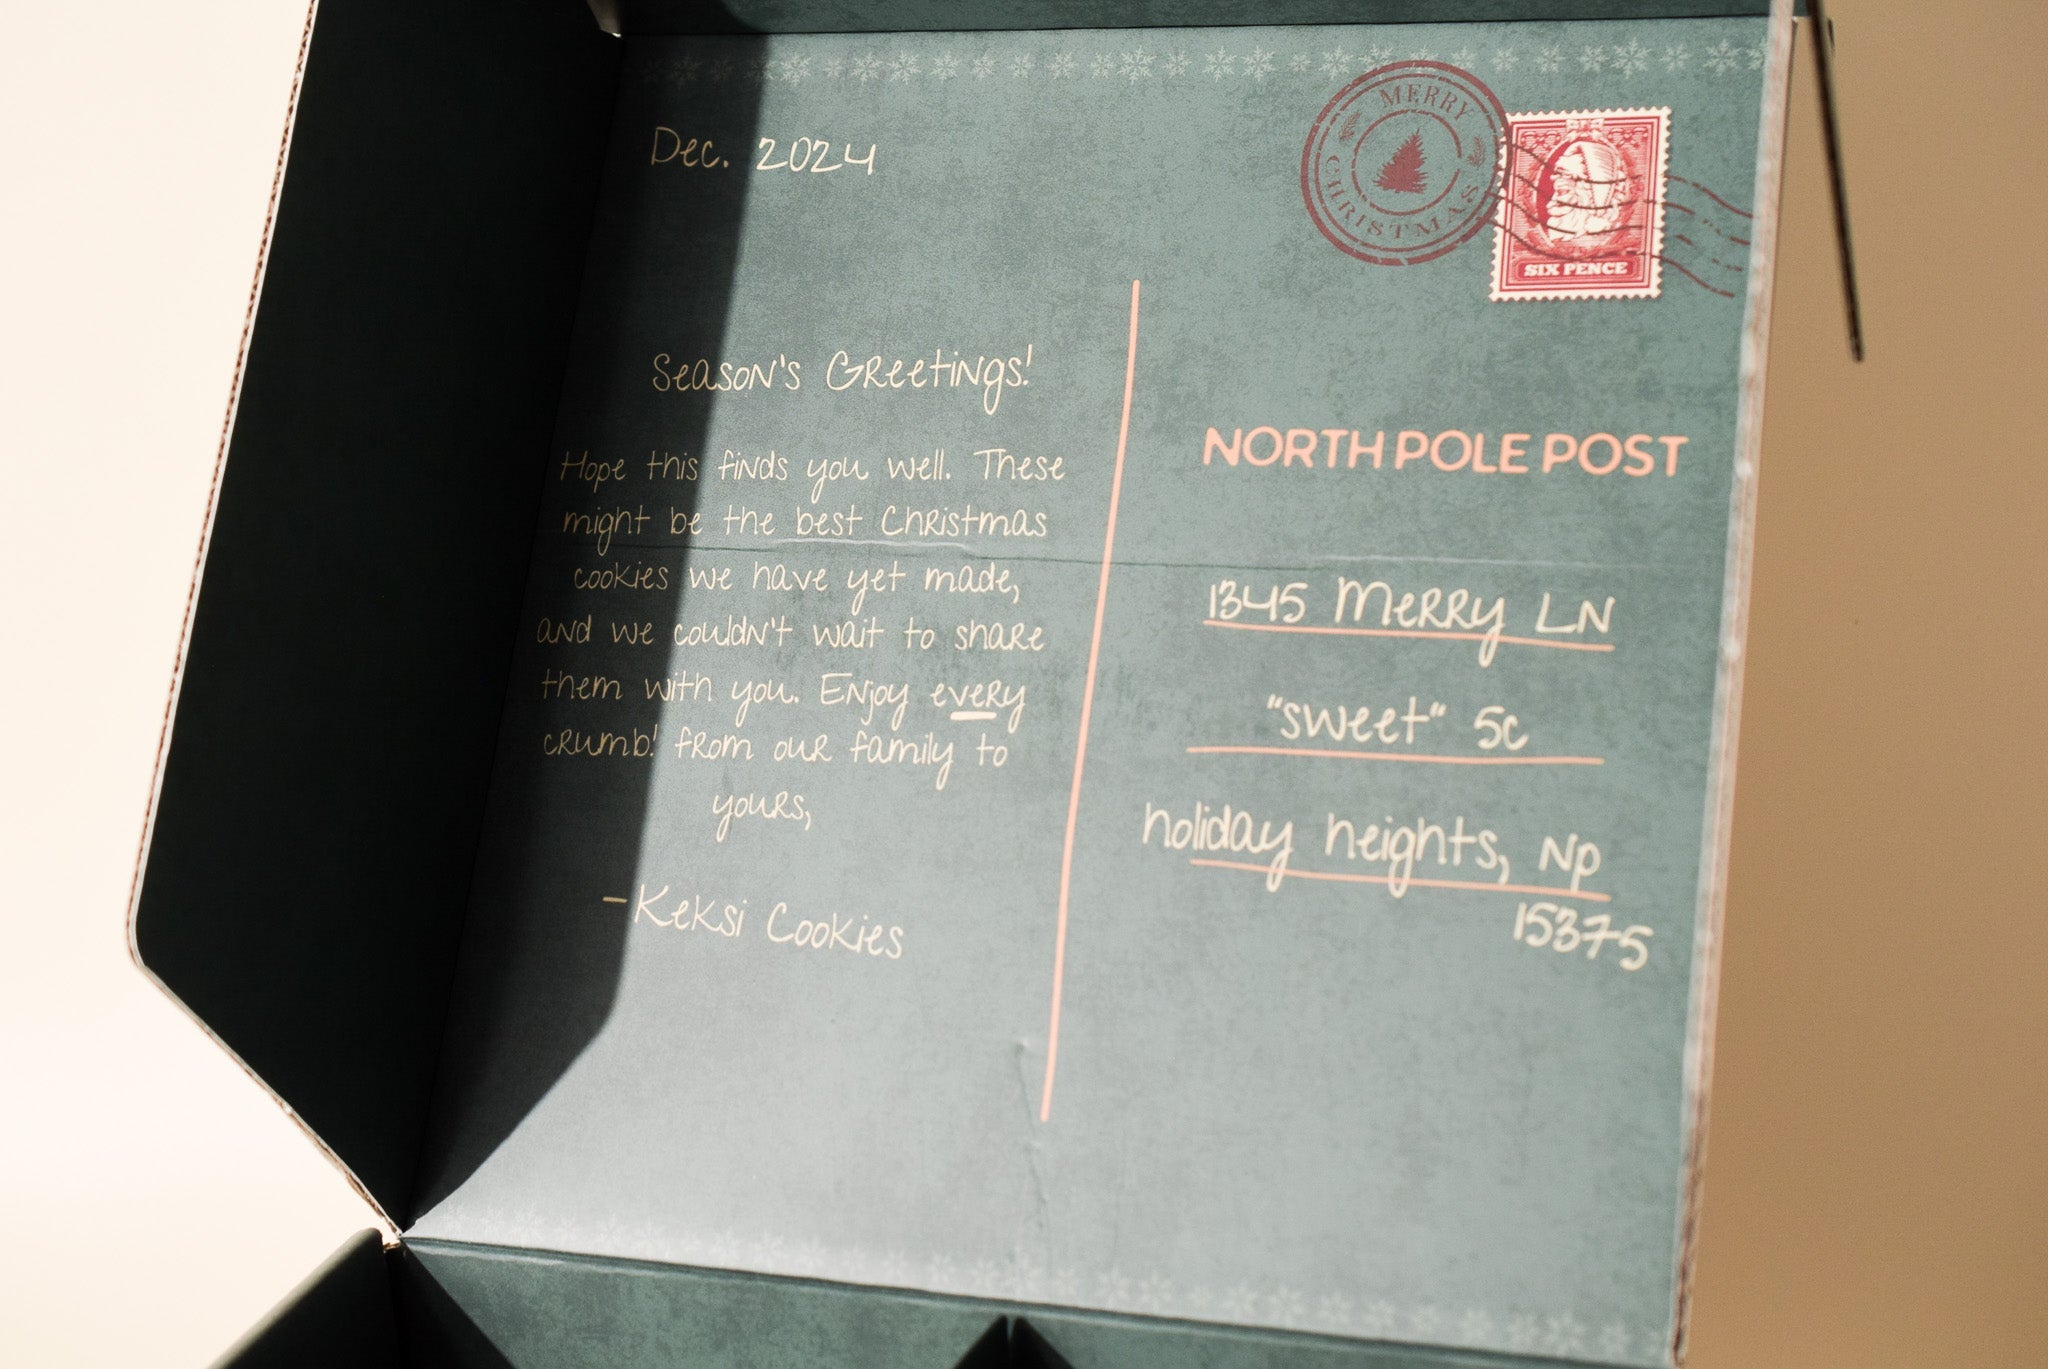 Dec. 2024
Season's Greetings!
Hope this finds you well. These
might be the best Christmas
cookies we have yet made,
and we couldn't wait to share
them with you. Enjoy every
crumb! from our family to
yours,
-Keksi Cookies
MERRY
CHRISTMAS
SIX PENCE
NORTH POLE POST
1345 Merry LN
"sweet" 5c
holiday heights, Np
15375